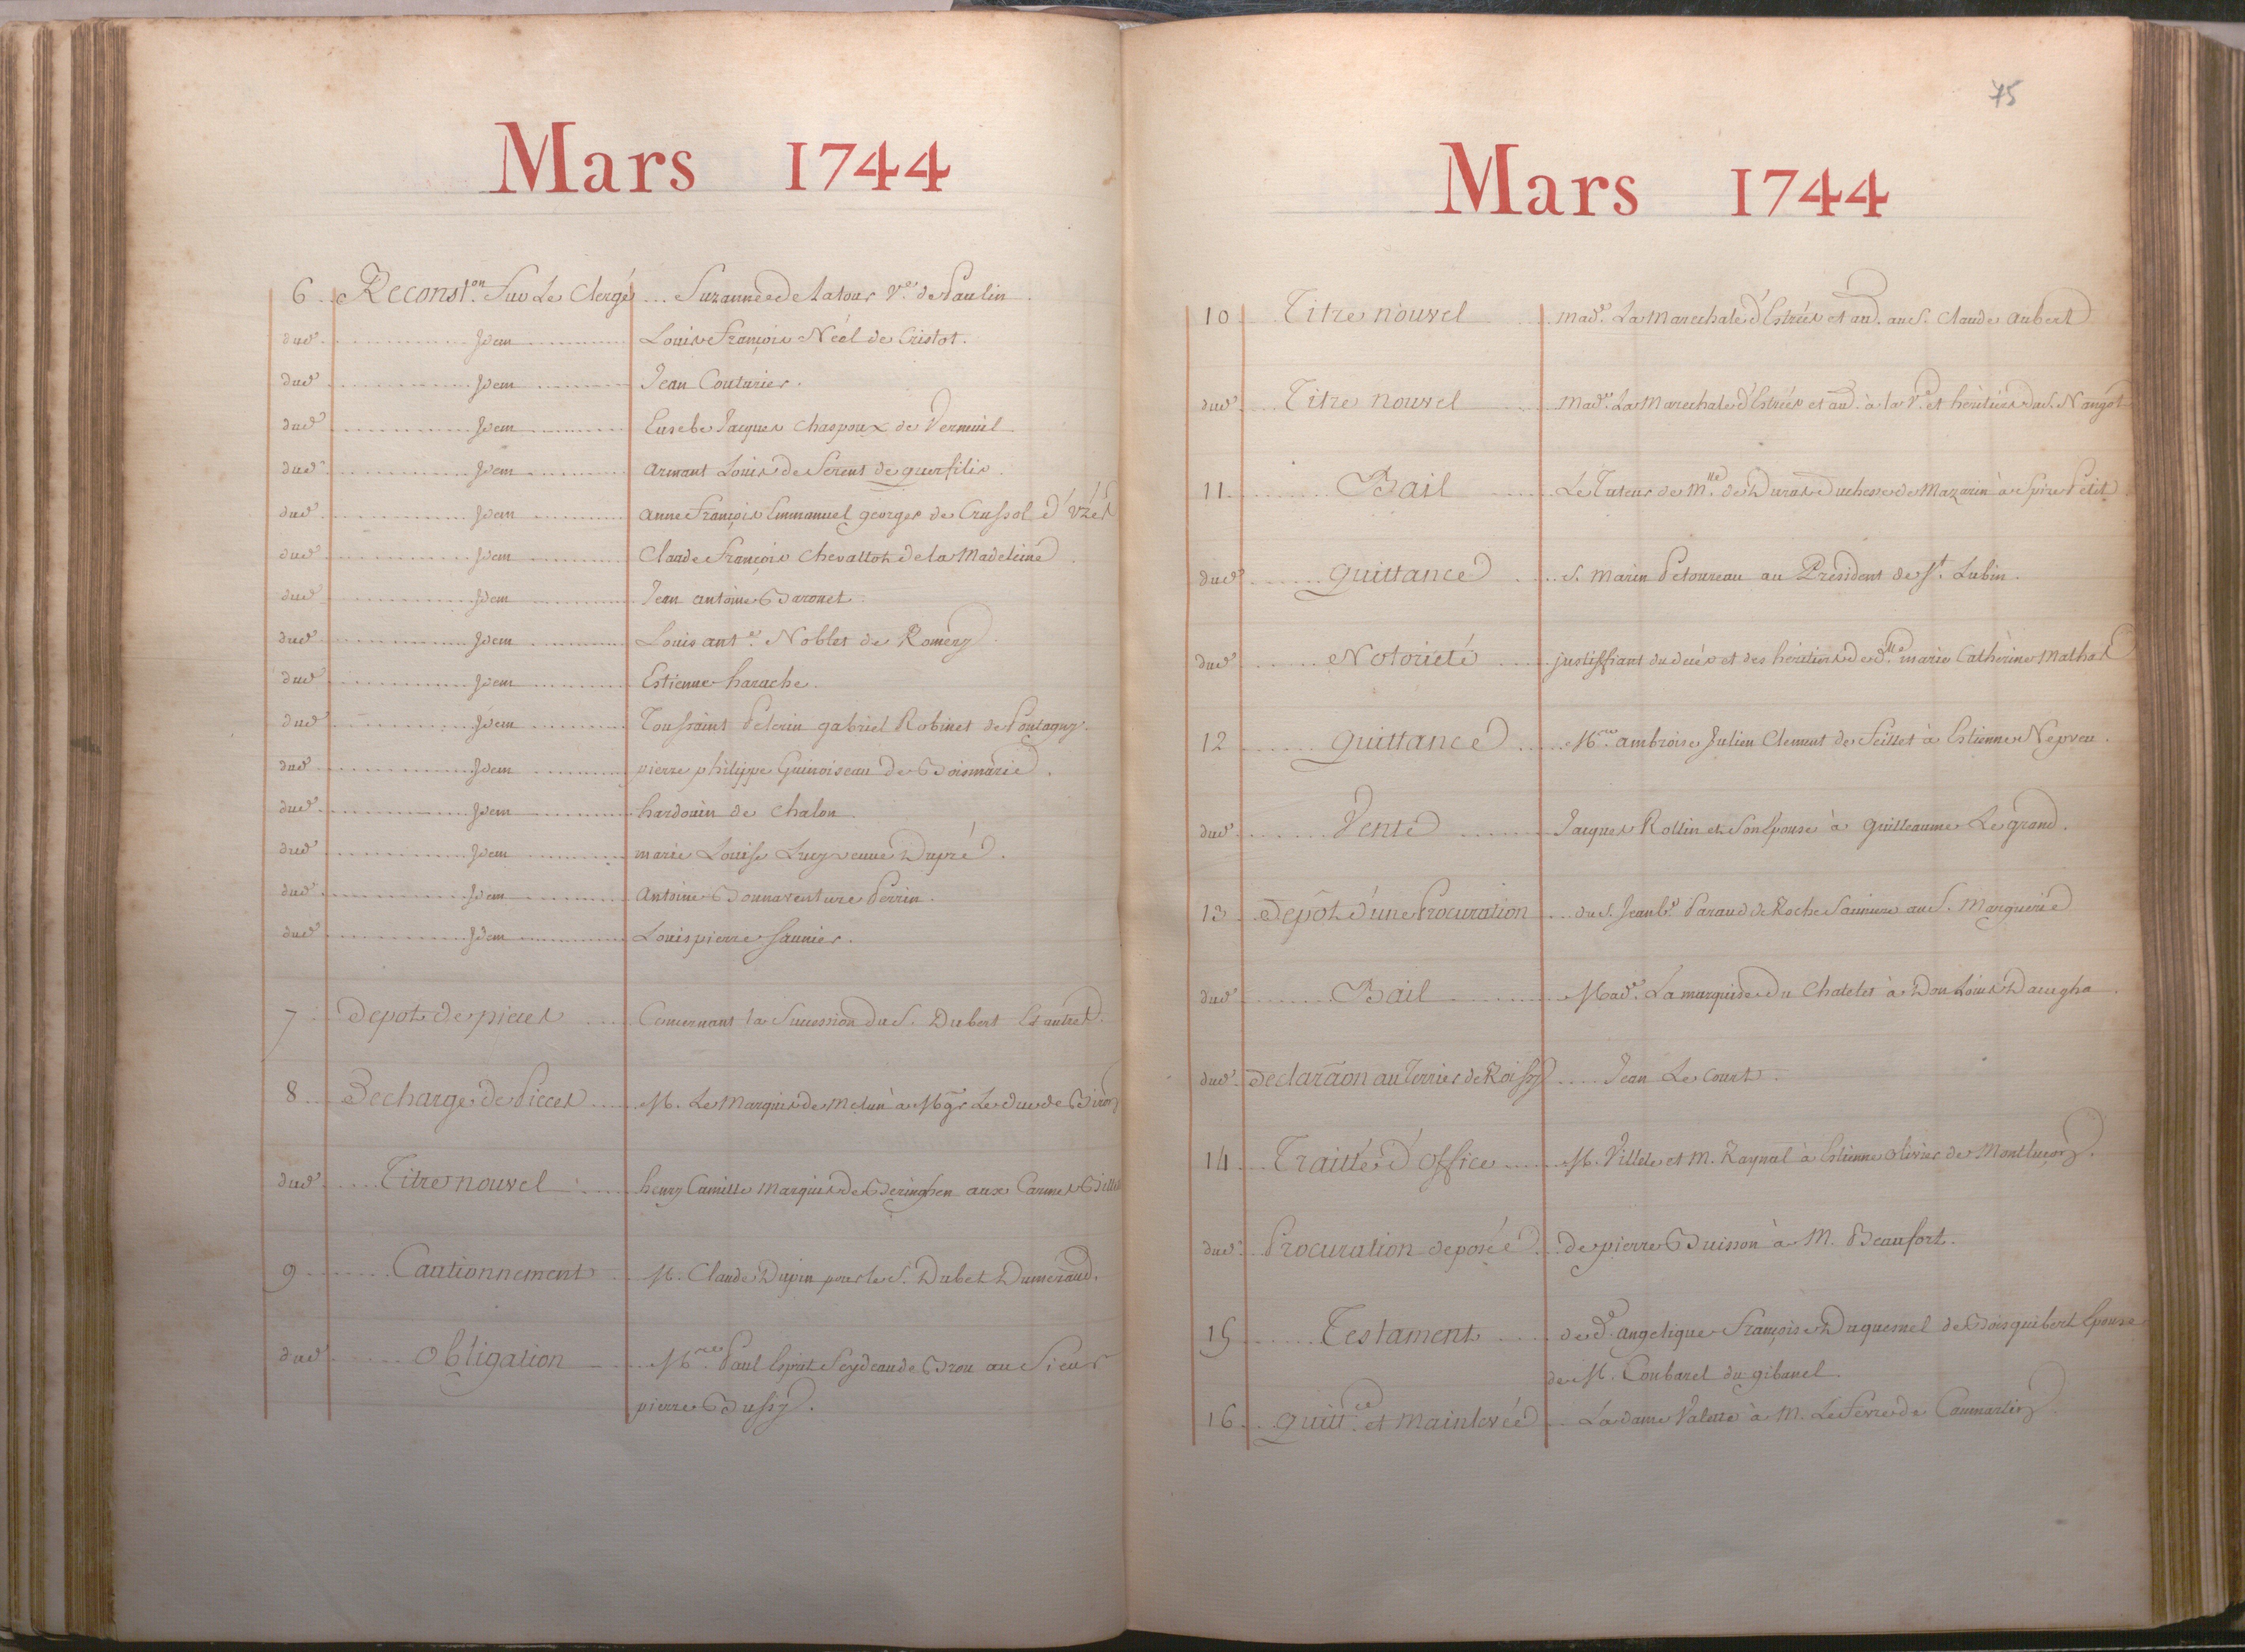 Mars 1744
6 Reconst.on Sur Le Clergé Suzanne de Latour V.e de Paulin.
dud. Idem Louis François Néel de Cristot.
dud. Idem Jean Couturier.
dud. Idem Eusebe Jacques Chaspoux de Verneuil
dud. Idem Armant Louis de Serent de querfilis.
dud. Idem Anne François Emmanuel georges de Crussol d'Uzés
dud. Idem Claude François Chevallot de la Madeleine.
dud. Idem Jean antoine Baronet.
dud. Idem Louis ant.e Noblet de Romery.
dud. Idem Estienne harache.
dud. Idem Toussaint Pelerin gabriel Robinet de Pontagny.
dud. Idem pierre philippe Guinoiseau de Boismarie.
dud. Idem hardouin de Chalon.
dud. Idem marie Louise Lucy veuve Dupré.
dud. Idem Antoine Bonnaventure Perrin.
dud. Idem Louis pierre Saunier.
7 Depot de pieces Concernant la Succession du S. Dubert Et autres.
8 Decharge de Pieces M. Le Marquis de Melun à Mgr Le duc de Biron
dud. Titre nouvel henry Camille Marquis de Beringhen aux Carmes Billettes
9 Cautionnement M. Claude Dupin pour le S. Dubet Dumeraud.
dud. Obligation M.re Paul Esprit Feydeau de Brou au Sieur
pierre Bussy.
75
Mars 1744
10 Titre nouvel mad.e La Marechale d'Estrées et au.d. au S. Claude Aubert
dud. Titre nouvel Mad.e La Marechale d'Estrées et aud. à la V.e et héritiers du S. Nangot
11 Bail Le Tuteur de M.lle de Duras Duchesse de Mazarin à Spire Petit
dud. quittance S. Marin Petoureau au Président de S.t Lubin.
dud. Notorieté justiffiant du décés et des héritiers de d.lle marie Catherine Mathas
12 quittance M.re ambroise Julien Clement de Feillet à Estienne Nepveu.
dud. Vente Jacques Rollin et Son Epouse à Guilleaume Legrand.
13 Depôt d'une Procuration du S. Jean B.e Paraud de Roche Sainure au S. Marguerie
dud. Bail Mad.e La marquise du Chatelet à Don Louis Dacugha.
dud. Declaraon au Terrier de Roissy Jean Le Court.
14 Traitté d'office M. Villele et M. Raynal à Estienne Olivier de Montluçon.
dud. Procuration deposée de pierre Buisson à M. Beaufort.
15 Testament de d.e angelique Françoise Duquesnel de Boisguibert Epouse
de M. Combarel du gibanel.
16 quitt.ce et mainlevée La dame Valette à M. Le Fevre de Caumartin.